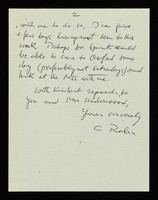 2
wish me to do so, I can give
a few days
work. Perhaps Dr. could
be able to come to Oxford some
day (preferably not Saturday) and
look at the MSS with me.
With kindest regards to
you and Mrs. Underwood,
Yours sincerely
C. Rabin